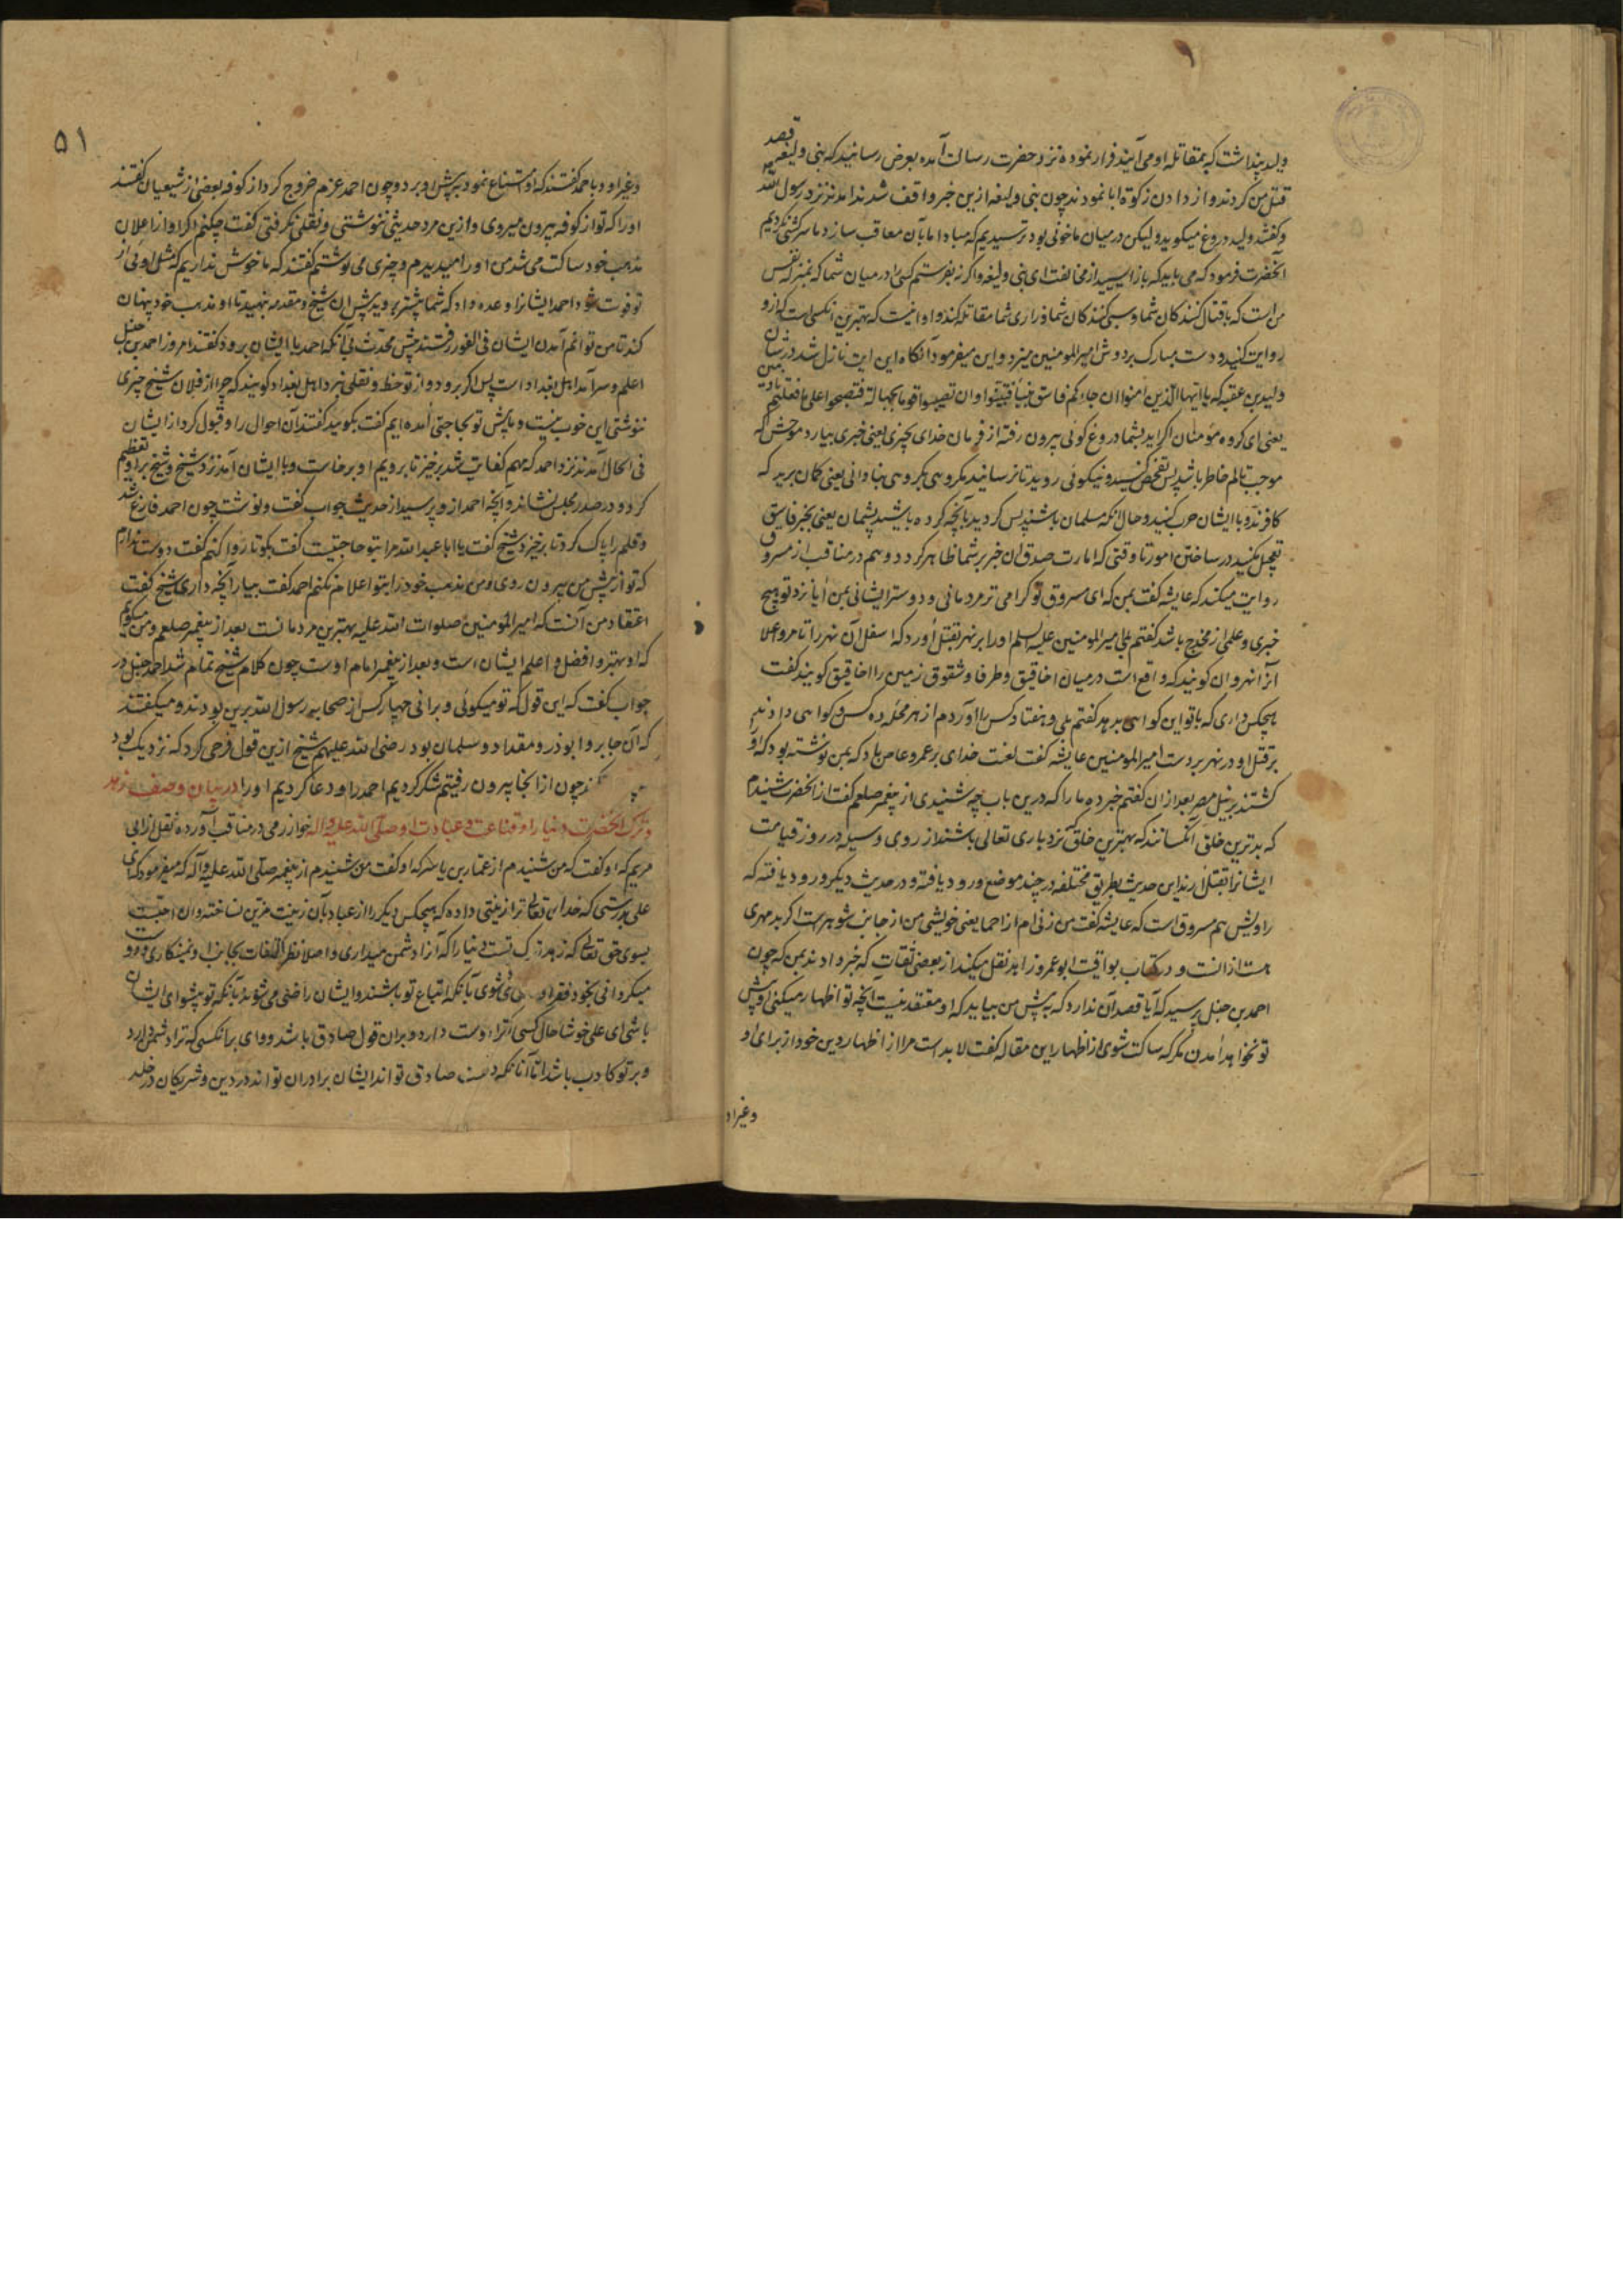 ولید پنداشت که بمقاتله او می آیند فرار نموده نزد حضرت رسالت آمده بعرض رسانید که بنی ولیعه قصد
قتل من کردند و از دادن زکوة ابا نمودند چون بنی ولیعه ازین خبر واقف شدند آمدند نزد رسول الله
و گفتند ولید دروغ میگوید ولیکن در میان ما خونی بود ترسیدیم که مبادا ما بآن معاقب سازد ما سرکشی نکردیم
آنحضرت فرمود که می باید که باز ایستید از مخالفت ای بنی ولیعه و اگر نه بفرستم کسی را در میان شما که بمنزله نفس
من است که با قتال کنندگان شما و سبی کنندگان شما و ذراری شما مقاتله کند و او اینست که بهترین آنکسی است که ازو
روایت کنید و دست مبارک بر دوش امیر المومنین میزد و این میفرمود آنگاه این آیت نازل شد در شان
ولید بن عقبه که یا ایها الذین امنوا ان جاءکم فاسق بنبأ فتبینوا ان تصیبوا قوما بجهالة فتصبحوا علی ما فعلتم نادمین
یعنی ای گروه مؤمنان اگر آید بشما دروغ گوئی بیرون رفته از فرمان خدای بچیزی یعنی خبری بیارد موحش که
موجب تالم خاطر باشد پس تفحص کنید و نیکوئی روید تا نرسانید مکروهی بگروهی بنادانی یعنی گمان برید که
کافرند و با ایشان حرب کنید و حال آنکه مسلمان باشند پس گردید بآنچه کرده باشید پشیمان یعنی بخبر فاسق
تعجیل مکنید در ساختن امور تا وقتی که امارت صدق آن خبر بر شما ظاهر گردد و هم در مناقب از مسروق
روایت میکند که عایشه گفت بمن که ای مسروق تو گرامی تر مردمانی و دوستر ایشانی بمن آیا نزد تو هیچ
خبری و علمی از مخدج باشد گفتم بلی امیر المومنین علیه السلم او را بر نهر بقتل آورد که اسفل آن نهر را تامرا و اعلا
آنرا نهروان گویند که واقع است در میان اخاقیق و طرفا و شقوق زمین را اخاقیق گویند گفت
هیچکس داری که با تو این گواهی بدهد گفتم بلی و هفتاد کس را آوردم از هر محله ده کس و گواهی دادند
بر قتل او در نهر بر دست امیر المومنین عایشه گفت لعنت خدای بر عمرو عاص باد که بمن نوشته بود که او
کشتند بر نیل مصر بعد از ان گفتم خبر ده ما را که درین باب چه شنیدی از پیغمبر صلعم گفت از آنحضرت شنیدم
که بدترین خلق آنکسانند که بهترین خلق که نزد باری تعالی باشند از روی وسیله در روز قیامت
ایشانرا بقتل آرند این حدیث بطریق مختلفه در چند موضع ورود یافته و در حدیث دیگر ورود یافته که
راویش هم مسروق است که عایشه گفت من زنی ام از احما یعنی خویشی من از جانب شوهر است اگر بدمهری
هست از انست و در کتاب یواقیت ابو عمر زاهد نقل میکند از بعضی ثقات که خبر دادند بمن که چون
احمد بن حنبل پرسید که آیا قصد آن ندارد که به پیش من بیاید که او معتقد نیست آنچه تو اظهار میکنی و پیش
تو نخواهد آمدن مگر که ساکت شوی از اظهار این مقاله گفت لابد است مرا از اظهار دین خود از برای او
و غیر او
۵۱
و غیر او و با احمد گفتند که او امتناع نمود به پیش او برد و چون احمد عزم خروج کرد از کوفه بعضی از شیعیان گفتند
او را که تو از کوفه بیرون میروی و ازین مرد حدیثی ننوشتی و نقلی نگرفتی گفت چکنم اگر او از اعلان
مذهب خود ساکت می شد من او را میدیدم و چیزی می نوشتم گفتند که ما خوش نداریم که مثل اوئی از
تو فوت شود احمد ایشانرا وعده داد که شما پیشتر بروید پیش آن شیخ و مقدمه بنهید تا او مذهب خود پنهان
کند تا من توانم آمدن ایشان فی الفور رفتند پیش محدث بی آنکه احمد با ایشان برود گفتند امروز احمد بن حنبل
اعلم و سرآمد اهل بغداد است پس اگر برود و از تو خط و نقلی نبرد اهل بغداد گویند که چرا از فلان شیخ چیزی
ننوشتی این خوب نیست و ما پیش تو بحاجتی آمده ایم گفت بگویید گفتند آن احوال را و قبول کرد از ایشان
فی الحال آمدند نزد احمد که مهم کفایت شد برخیز تا برویم او برخاست و با ایشان آمد نزد شیخ و شیخ بر او تعظیم
کرد و در صدر مجلس نشاند و آنچه احمد از او پرسید از حدیث جواب گفت و نوشت چون احمد فارغ شد
و قلم را پاک کرد تا برخیزد شیخ گفت یا ابا عبد الله مرا بتو حاجتیست گفت بگو تا روا کنم گفت دوست ندارم
که تو از پیش من بیرون روی و من مذهب خود را بتو اعلام نکنم احمد گفت بیار آنچه داری شیخ گفت
اعتقاد من آنست که امیر المومنین صلوات الله علیه بهترین مردمانست بعد از پیغمبر صلعم و من میگویم
که او بهتر و افضل و اعلم ایشان است و بعد از پیغمبر امام اوست چون کلام شیخ تمام شد احمد حنبل در
جواب گفت که این قول که تو میگوئی و برانی چهار کس از صحابه رسول الله برین بودند و میگفتند
که آن جابر و ابوذر و مقداد و سلمان بود رضی الله علیهم شیخ ازین قول فرحی کرد که نزدیک بود
چون از آنجا بیرون رفتیم شکر کردیم احمد را و دعا کردیم او را در بیان وصف زهد
و ترک آنحضرت دنیا را و قناعت و عبادت او صلی الله علیه و اله خوارزمی در مناقب آورده نقل از ابی
مریم که او گفت که من شنیدم از عمار بن یاسر که او گفت من شنیدم از پیغمبر صلی الله علیه و آله که میفرمود که ای
علی بدرستی که خدای تعالی ترا زینتی داده که هیچکس دیگر را از عباد بآن زینت مزین نساخته و آن احبست
بسوی حق تعالی که زهد ترک تست دنیا را که آنرا دشمن میداری و اصلا نظر التفات بجانب او نمیگماری و دوست
میگردانی بخود فقرا را راضی می شوی بآنکه اتباع تو باشند و ایشان راضی می شوند بآنکه تو پیشوای ایشان
باشی ای علی خوشا حال کسی که ترا دوست دارد و بر ان قول صادق باشد و وای بر آنکسی که ترا دشمن دارد
و بر تو کاذب باشد اما آنانکه دوست صادق تو اند ایشان برادران تو اند در دین و شریکان در خلد